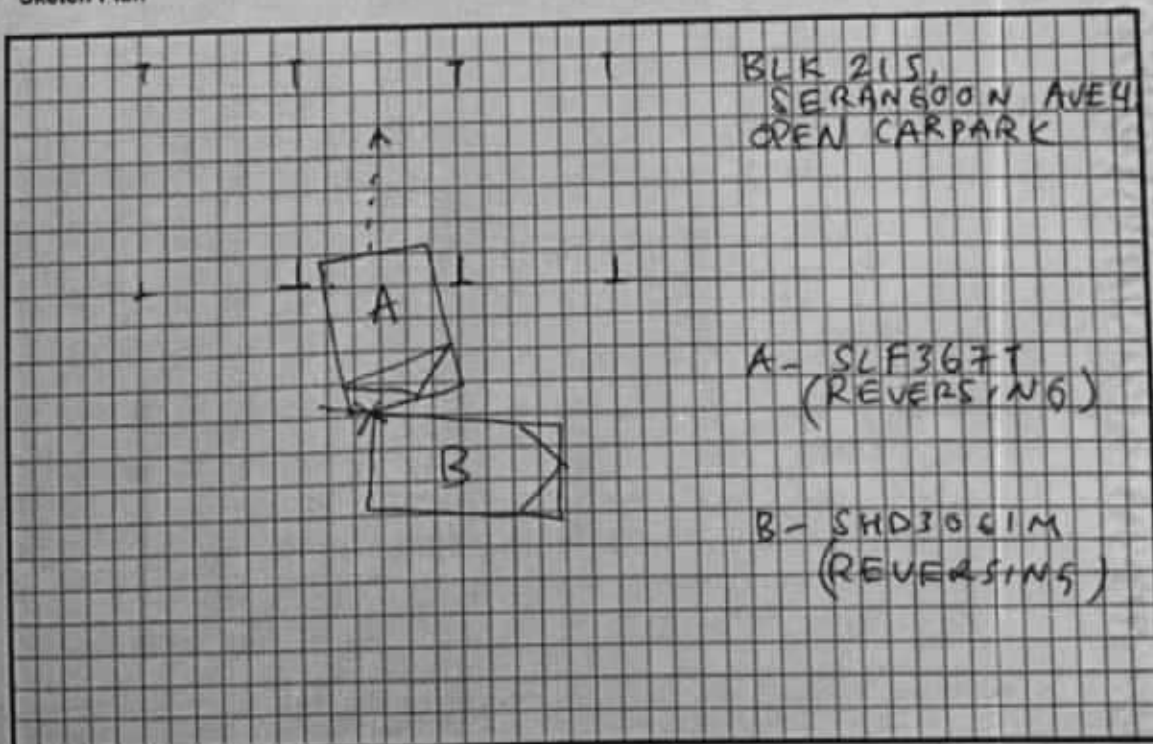 BLK 215,
SERANGOON AVE 4
OPEN CARPARK
A
A - SLF367T
(REVERSING)
B
B - SHD3061M
(REVERSING)